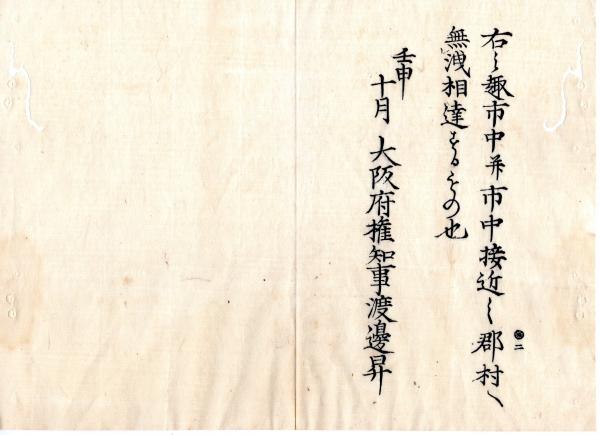 右之趣市中并市中接近之郡村へ
無洩相達するもの也
壬申
十月 大阪府権知事渡邊昇
二